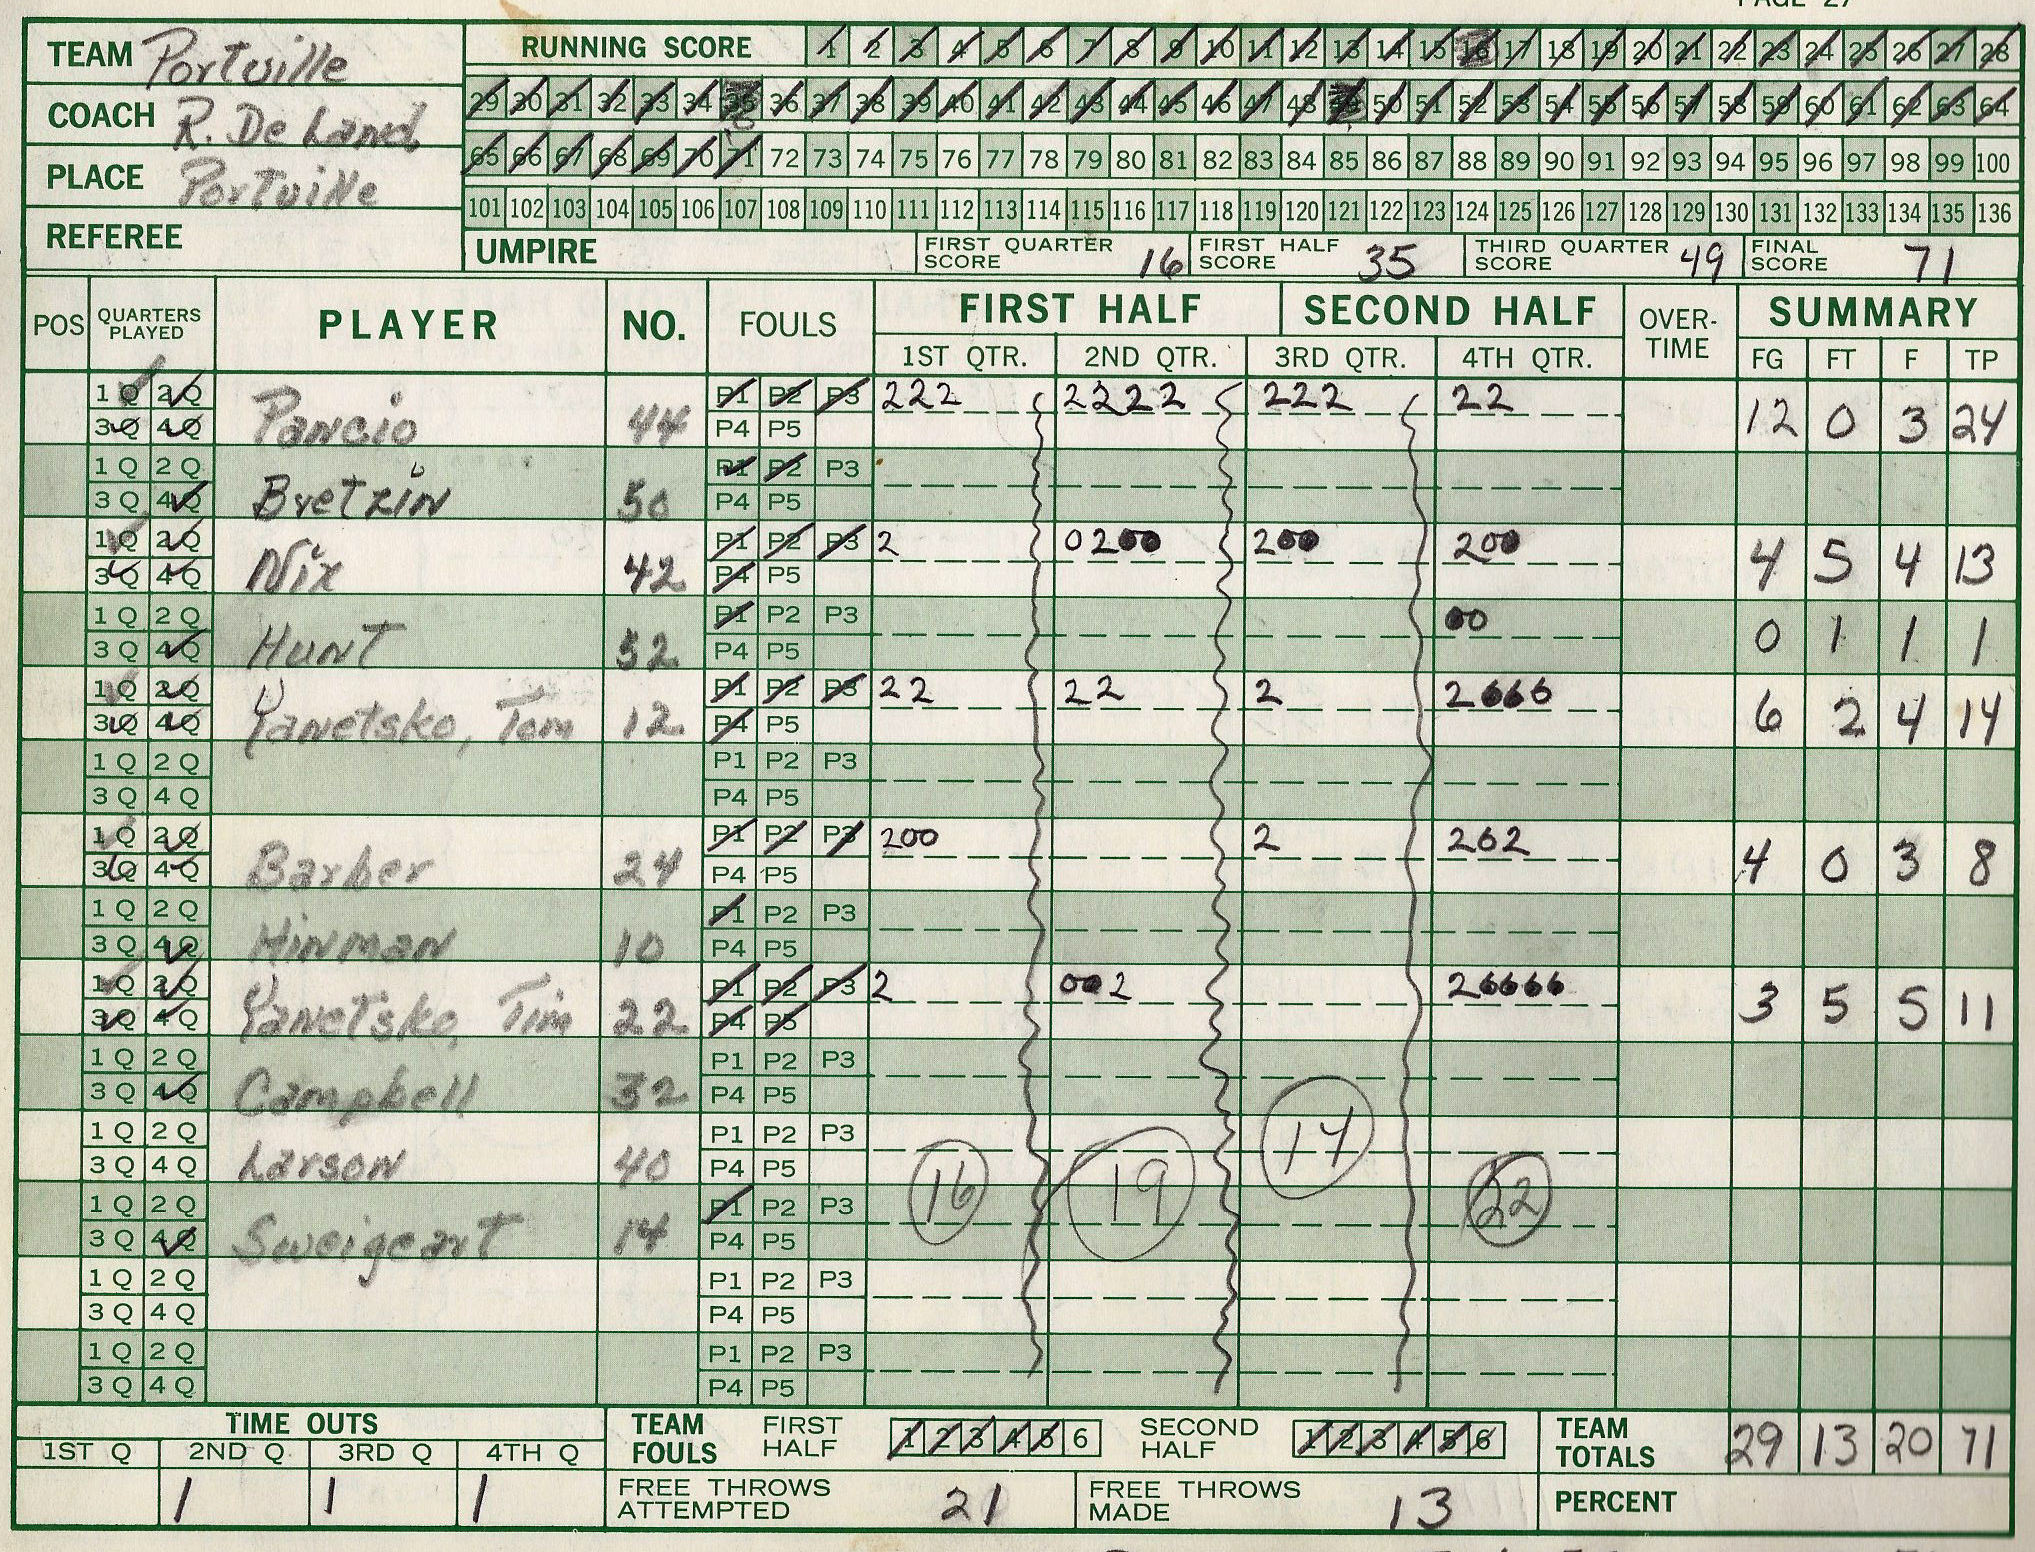 TEAM Portville
COACH R. De Land
PLACE Portville
REFEREE
RUNNING SCORE 1 2 3 4 5 6 7 8 9 10 11 12 13 14 15 16 17 18 19 20 21 22 23 24 25 26 27 28
29 30 31 32 33 34 35 36 37 38 39 40 41 42 43 44 45 46 47 48 49 50 51 52 53 54 55 56 57 58 59 60 61 62 63 64
65 66 67 68 69 70 71 72 73 74 75 76 77 78 79 80 81 82 83 84 85 86 87 88 89 90 91 92 93 94 95 96 97 98 99 100
101 102 103 104 105 106 107 108 109 110 111 112 113 114 115 116 117 118 119 120 121 122 123 124 125 126 127 128 129 130 131 132 133 134 135 136
UMPIRE FIRST QUARTER SCORE 16 FIRST HALF SCORE 35 THIRD QUARTER SCORE 49 FINAL SCORE 71
POS QUARTERS PLAYED PLAYER NO. FOULS FIRST HALF SECOND HALF OVER-TIME SUMMARY
1ST QTR. 2ND QTR. 3RD QTR. 4TH QTR. FG FT F TP
1 Q 2 Q P1 P2 P3 222 2222 222 22
3 Q 4 Q Pancio 44 P4 P5 12 0 3 24
1 Q 2 Q P1 P2 P3
3 Q 4 Q Bretzin 50 P4 P5
1 Q 2 Q P1 P2 P3 2 0200 200 200
3 Q 4 Q Nix 42 P4 P5 4 5 4 13
1 Q 2 Q P1 P2 P3 00
3 Q 4 Q Hunt 52 P4 P5 0 1 1 1
1 Q 2 Q P1 P2 P3 22 22 2 2666
3 Q 4 Q Yanetsko, Tom 12 P4 P5 6 2 4 14
1 Q 2 Q P1 P2 P3
3 Q 4 Q P4 P5
1 Q 2 Q P1 P2 P3 200 2 262
3 Q 4 Q Barber 24 P4 P5 4 0 3 8
1 Q 2 Q P1 P2 P3
3 Q 4 Q Hinman 10 P4 P5
1 Q 2 Q P1 P2 P3 2 002 26666
3 Q 4 Q Yanetsko, Tim 22 P4 P5 3 5 5 11
1 Q 2 Q P1 P2 P3
3 Q 4 Q Campbell 32 P4 P5
1 Q 2 Q P1 P2 P3 14
3 Q 4 Q Larson 40 P4 P5
1 Q 2 Q P1 P2 P3 16 19 22
3 Q 4 Q Sweigeart 14 P4 P5
1 Q 2 Q P1 P2 P3
3 Q 4 Q P4 P5
1 Q 2 Q P1 P2 P3
3 Q 4 Q P4 P5
TIME OUTS TEAM FOULS FIRST HALF 1 2 3 4 5 6 SECOND HALF 1 2 3 4 5 6 TEAM TOTALS 29 13 20 71
1ST Q 2ND Q 3RD Q 4TH Q
1 1 1 FREE THROWS ATTEMPTED 21 FREE THROWS MADE 13 PERCENT